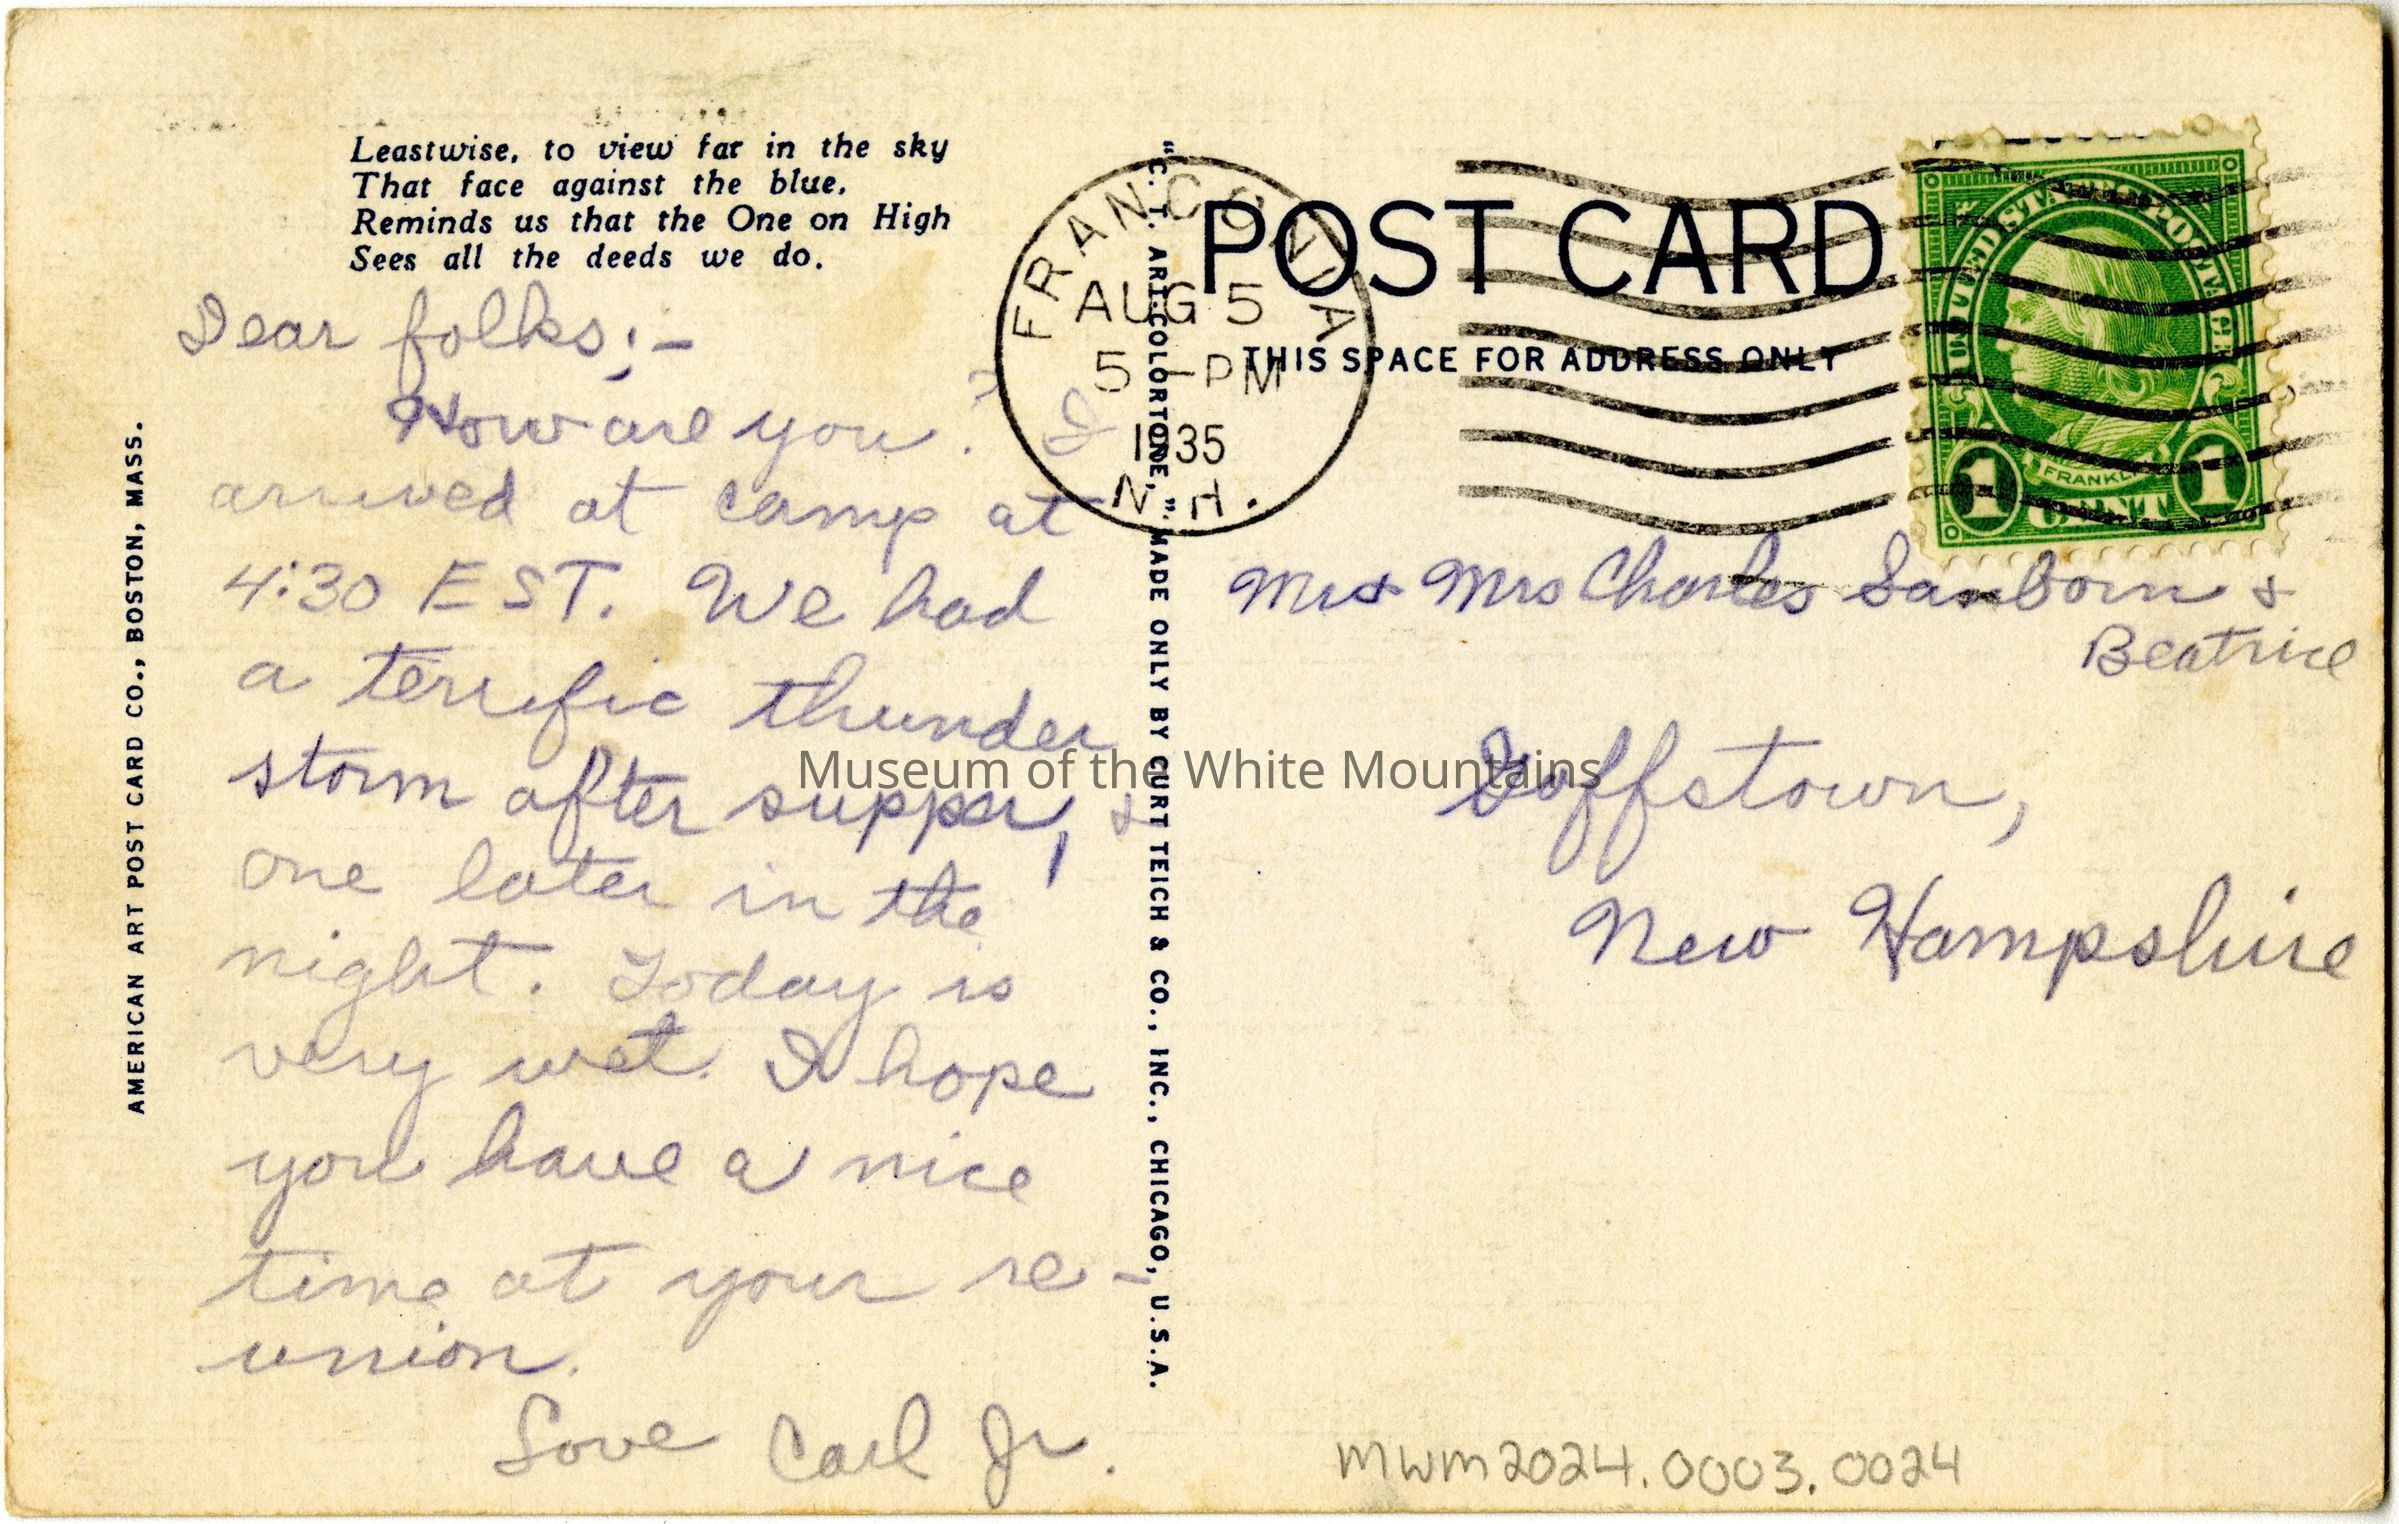 Leastwise, to view far in the sky
That face against the blue,
Reminds us that the One on High
Sees all the deeds we do.
Dear folks;-
How are you? I
arrived at camp at
4:30 EST. We had
a terrific thunder
storm after supper, &
one later in the
night. Today is
very wet. I hope
you have a nice
time at your re-
union.
Love Carl Jr.
AMERICAN ART POST CARD CO., BOSTON, MASS.
"C. T. ART-COLORTONE," MADE ONLY BY CURT TEICH & CO., INC., CHICAGO, U.S.A.
FRANCONIA
AUG 5
5-PM
1935
N.H.
POST CARD
THIS SPACE FOR ADDRESS ONLY
UNITED STATES POSTAGE
FRANKLIN
1 CENT 1
Mr & Mrs Charles Sanborn &
Beatrice
Goffstown,
New Hampshire
Museum of the White Mountains
MWM2024.0003.0024